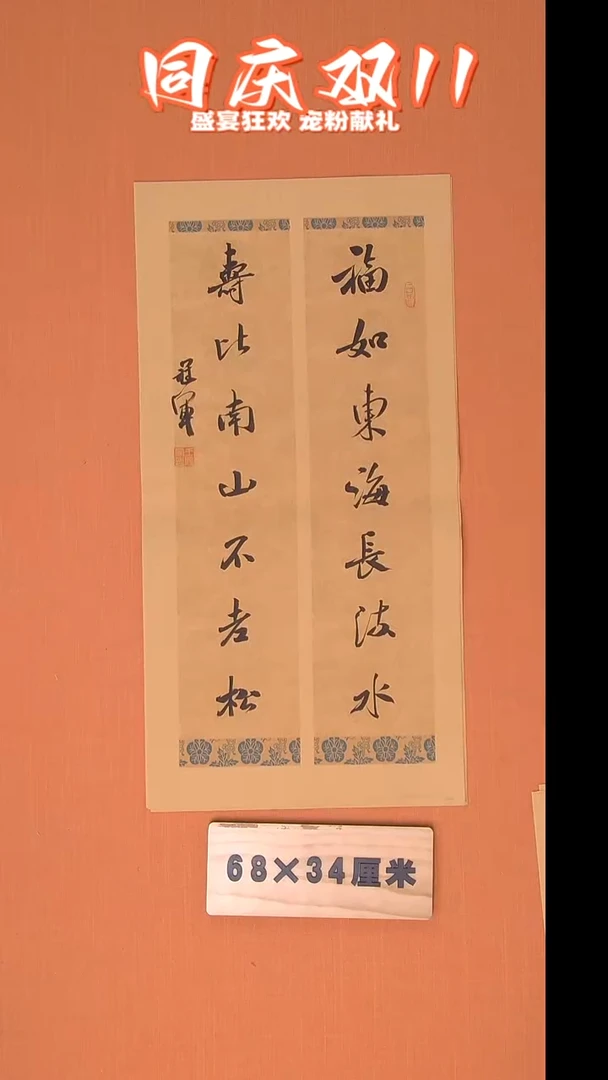 同庆双11
盛宴狂欢 宠粉献礼
福如東海長流水
壽比南山不老松
冠軍
68×34厘米